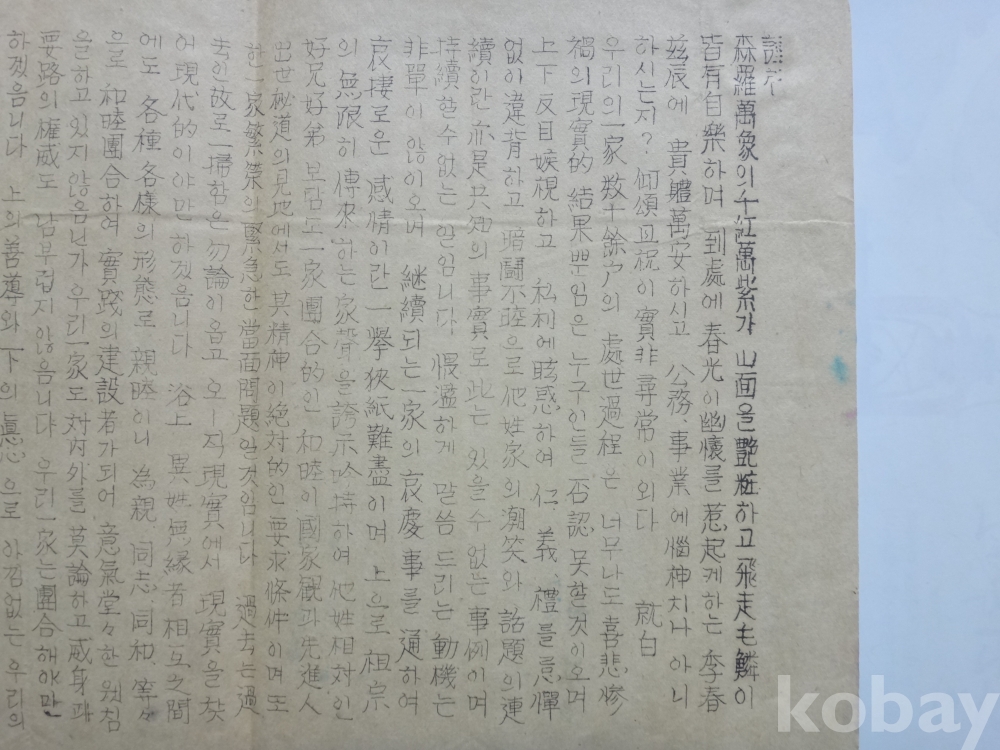 謹啓
森羅萬象이 千紅萬紫가 山面을 艶粧하고 飛走毛鱗이
皆有自樂하며 到處에 春光이 幽懷를 惹起케하는 季春
玆辰에 貴體萬安하시고 公務、事業에 惱神치나 아니
하시는지? 仰頌且祝이 實非尋常이외다 就白
우리의 一家 数十餘戶의 處世過程은 너무나도 喜悲慘
禍의 現實的 結果뿐임은 누구인들 否認 못할것이오며
上下反目嫉視하고 私利에 眩惑하여 仁、義、禮를 忌憚
없이 違背하고 暗鬪不睦으로 他姓家의 潮笑와 話題의 連
續이란 亦是共知의 事實로 此는 있을수 없는 事例이며
持續할수 없는 일임니다. 猥濫하게 말씀드리는 動機는
非單이 않이오며 継續되는 一家의 哀慶事를 通하여
哀悽로운 感情이란 一擧狹紙難盡이며 上으로 祖宗
의 無限히 傳來하는 家聲을 誇示吟持하여 他姓相対인
好兄好弟 보담도 一家團合的인 和睦이 國家観과 先進人
出世秘道의 見地에서도 其精神이 絶対的인 要求條件이며 또
한 家繁榮의 緊急한 當面問題일것임니다 過去는 過
去인故로 一掃함은 勿論이옵고 오ー직 現實에서 現實을 찾
어 現代的이야만 하겠음니다 浴上 異姓無縁者 相互之間
에도 各種各樣의 形態로 親睦이니 為親 同志、同和、等々
으로 和睦團合하여 實踐의 建設者가되어 意氣堂々한 웟침
을하고 있지 않음닌가 우리 一家도 対内外를 莫論하고 威身과
要路의 權威도 남부럽지않음니다 우리 一家는 團合해야만
하겠음니다 上의 善導와 下의 으로 아낌없는 우리의